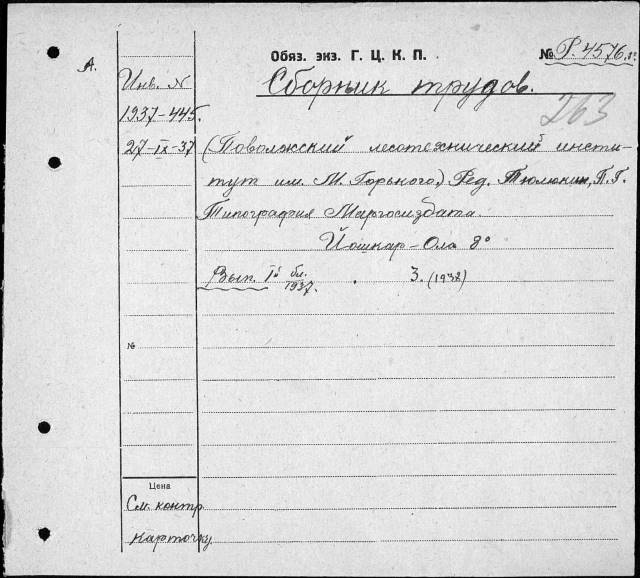 А.
Обяз. экз. Г. Ц. К. П.
№ Р. 4576.
Инв. N
Сборник трудов.
1937-445.
263
27-IX-37
(Поволжский лесотехнический инсти-
тут им. М. Горького.) Ред. Тюлюкин, П. Г.
Типография Маргосиздата.
Йошкар-Ола 8°
Вып. I й бл. 1937. . 3. (1938)
№
Цена
См. контр
карточку